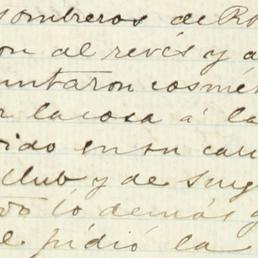 sombreros de Ro
on al revés y a
untaron cosmé
r la cosa á la
ido en su
Club y de
lo demás y
pidió la